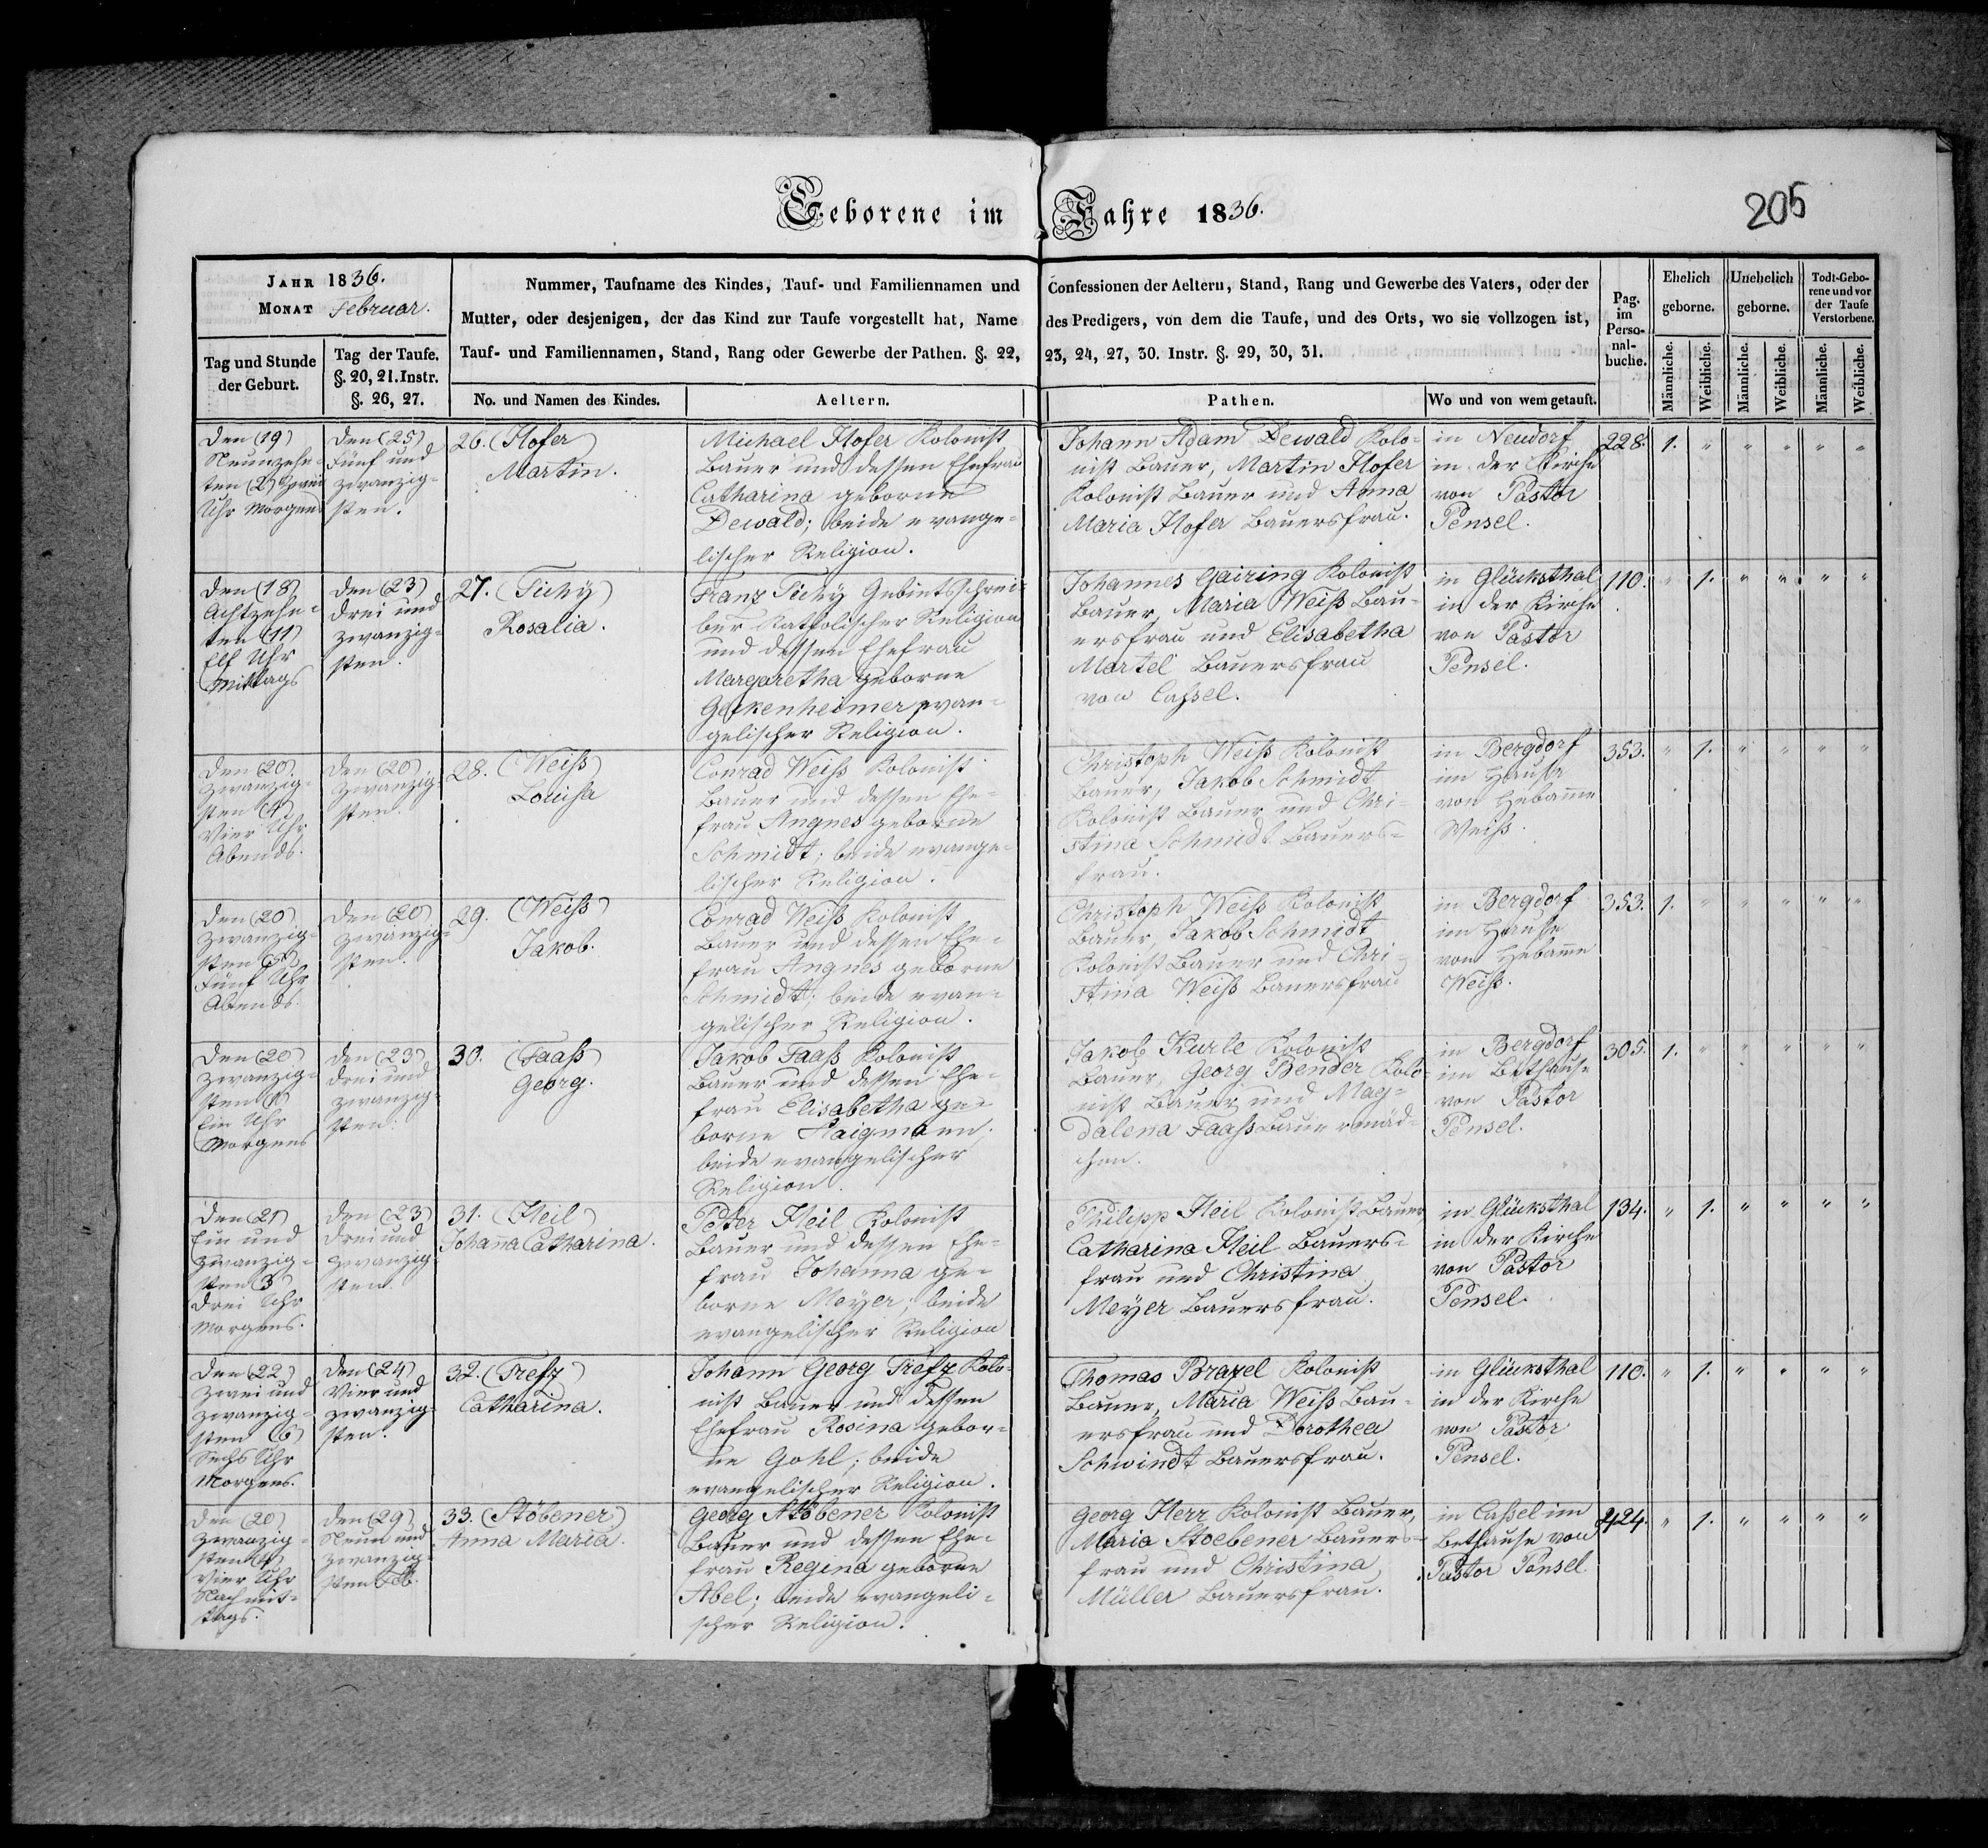 Geborene im Jahre 1836.
205
JAHR 1836.
MONAT Februar.
Tag und Stunde der Geburt.
Tag der Taufe. §. 20, 21. Instr. §. 26, 27.
Nummer, Taufname des Kindes, Tauf- und Familiennamen und Confessionen der Aeltern, Stand, Rang und Gewerbe des Vaters, oder der
Mutter, oder desjenigen, der das Kind zur Taufe vorgestellt hat, Name des Predigers, von dem die Taufe, und des Orts, wo sie vollzogen ist,
Tauf- und Familiennamen, Stand, Rang oder Gewerbe der Pathen. §. 22, 23, 24, 27, 30. Instr. §. 29, 30, 31.
No. und Namen des Kindes.
Aeltern.
Pathen.
Wo und von wem getauft.
Pag. im Perso-nal-buche.
Ehelich geborne.
Unehelich geborne.
Todt-Gebo-rene und vor der Taufe Verstorbene.
Männliche. Weibliche. Männliche. Weibliche. Männliche. Weibliche.
Den (19)
Neunzehn-
ten (2) Zwei
Uhr Morgens
Den (25)
Fünf und
zwanzig-
sten.
26. (Hofer)
Martin.
Michael Hofer Kolonist
Bauer und dessen Ehefrau
Catharina geborne
Dewald; beide evange-
lischer Religion.
Johann Adam Dewald Kolo-
nist Bauer, Martin Hofer
Kolonist Bauer und Anna
Maria Hofer Bauersfrau.
in Neudorf
in der Kirche
von Pastor
Pensel.
228. 1. " " " " "
Den (18)
Achtzehn-
ten (11)
Elf Uhr
Mittags
Den (23)
Drei und
zwanzig-
sten.
27. (Tichy)
Rosalia.
Franz Tichy Gebietsschrei-
ber Katholischer Religion
und dessen Ehefrau
Margaretha geborne
Geckenheimer evan-
gelischer Religion.
Johannes Gairing Kolonist
Bauer, Maria Weiß Bau-
ersfrau und Elisabetha
Martel Bauersfrau
von Cassel.
in Glücksthal
in der Kirche
von Pastor
Pensel.
110. " 1. " " " "
Den (20)
Zwanzig-
sten (4)
Vier Uhr
Abends.
Den (20)
Zwanzig-
sten.
28. (Weiß)
Louisa
Conrad Weiß Kolonist
Bauer und dessen Ehe-
frau Angnes geborne
Schmidt; beide evange-
lischer Religion.
Christoph Weiß Kolonist
Bauer, Jakob Schmidt
Kolonist Bauer und Chri-
stina Schmidt Bauers-
frau.
in Bergdorf
im Hause
von Hebam̄e
Weiß.
353. " 1. " " " "
Den (20)
Zwanzig-
sten (5)
Fünf Uhr
Abends.
Den (20)
Zwanzig-
sten.
29. (Weiß)
Jakob.
Conrad Weiß Kolonist
Bauer und dessen Ehe-
frau Angnes geborne
Schmidt; beide evan-
gelischer Religion.
Christoph Weiß Kolonist
Bauer, Jakob Schmidt
Kolonist Bauer und Chri-
stina Weiß Bauersfrau
in Bergdorf
im Hause
von Hebam̄e
Weiß.
353. 1. " " " " "
Den (20)
Zwanzig-
sten (1)
Ein Uhr
Morgens
Den (23)
Drei und
zwanzig-
sten.
30. (Faaß)
Georg.
Jakob Faaß Kolonist
Bauer und dessen Ehe-
frau Elisabetha ge-
borne Haigmann.
beide evangelischer
Religion.
Jakob Kurle Kolonist
Bauer, Georg Bender Kolo-
nist Bauer und Mag-
dalena Faaß Bauernmäd-
chen.
in Bergdorf
im Bethause
von Pastor
Pensel.
305. 1. " " " " "
Den (21)
Ein und
zwanzig-
sten (3)
Drei Uhr
Morgens.
Den (23)
Drei und
zwanzig-
sten.
31. (Heil)
Johan̄a Catharina.
Peter Heil Kolonist
Bauer und dessen Ehe-
frau Johanna ge-
borne Meyer; beide
evangelischer Religion
Philipp Heil Kolonist Bauer
Catharina Heil Bauers-
frau und Christina
Meyer Bauersfrau.
in Glücksthal
in der Kirche
von Pastor
Pensel.
134. " 1. " " " "
Den (22)
Zwei und
zwanzig-
sten (6)
Sechs Uhr
Morgens.
Den (24)
Vier und
zwanzig-
sten.
32. (Trefz)
Catharina.
Johann Georg Trefz Kolo-
nist Bauer und dessen
Ehefrau Rosina gebor-
ne Gohl; beide
evangelischer Religion.
Thomas Brazel Kolonist
Bauer, Maria Weiß Bau-
ersfrau und Dorothea
Schwindt Bauersfrau.
in Glücksthal
in der Kirche
von Pastor
Pensel.
110. " 1. " " " "
Den (20)
Zwanzig-
sten (4)
Vier Uhr
Nachmit-
tags.
Den (29)
Neun und
zwanzig-
sten Feb.
33. (Stöbener)
Anna Maria.
Georg Stöbener Kolonist
Bauer und dessen Ehe-
frau Regina geborne
Abel; beide evangeli-
scher Religion.
Georg Herr Kolonist Bauer,
Maria Stoebener Bauers-
frau und Christina
Müller Bauersfrau.
in Cassel im
Bethause von
Pastor Pensel
424. " 1. " " " "